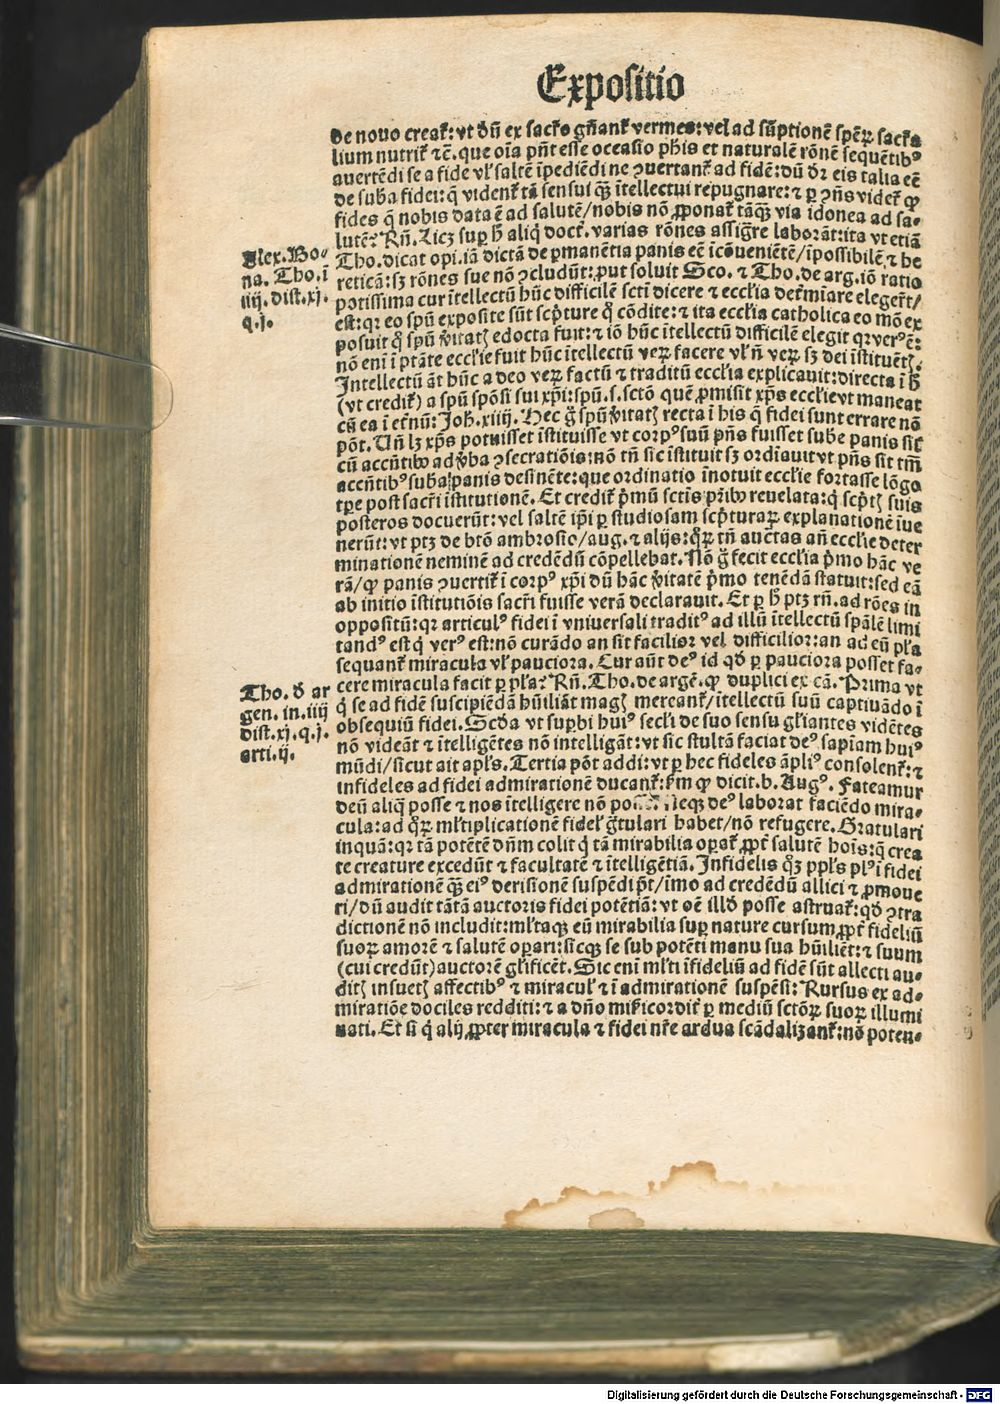 Expositio
de nouo creat᷑: vt dū ex sacr̄o gn̄ant᷑ vermes: vel ad sūptionē spēꝝ sacr̄a
lium nutrit᷑ ⁊c̄. que oīa pn̄t esse occasio ph̄is et naturalē rōnē sequētibꝰ
auertēdi se a fide vl̓ saltē īpediēdi ne ꝯuertant᷑ ad fidē: dū dr̄ eis talia eē
de sub̄a fidei: q̄ vident᷑ tā sensui qꝫ̄ ītellectui repugnare: ⁊ ꝑ ꝯn̄s videt᷑ ꝙ
fides q̄ nobis data ē ad salutē/nobis nō ꝓponat᷑ tāqꝫ̄ via idonea ad sa-
lutē? Rn̄. Licꝫ suꝑ h̄ aliq̄ doct̄. varias rōnes assig̅re laborāt: ita vt etiā
Tho. dicat opi. iā dictā de ꝑmanētia panis eē icōueniētē/īpossibilē ⁊ he
reticā: sꝫ rōnes sue nō ꝯcludūt: put soluit Sco. ⁊ Tho. de arg. iō ratio
potissima cur ītellectū hūc difficilē sctī dicere ⁊ eccl̓ia det̓mīare elegert̄/
est: qꝛ eo spū exposite sūt scp̄ture q̊ cōdite: ⁊ ita eccl̓ia catholica eo mō ex
posuit q̊ spū v̓itatꝭ edocta fuit: ⁊ iō hūc ītellectū difficilē elegit qꝛ verꝰ ē:
nō eni ī ptāte eccl̓ie fuit hūc ītellectū veꝝ facere vl̓ n̄ veꝝ sꝫ dei īstituētꝭ.
Intellectū āt hūc a deo veꝝ factū ⁊ traditū eccl̓ia explicauit: directa ī h̄
(vt credit᷑) a spū spōsi sui xp̄i: spū. s. sctō quē ꝓmisit xp̄s eccl̓ie vt maneat
cū ea ī et̓nū: Joh. xiiij. Hec g̊ spū v̓itatꝭ recta ī his q̄ fidei sunt errare nō
pōt. Un̄ lꝫ xp̄s potuisset īstituisse vt corpꝰ suū pn̄s fuisset sube panis sil̓
cū accn̄tibꝰ ad v̓ba ꝯsecratiōis: nō tn̄ sic īstituit sꝫ ordīauit vt pn̄s sit tm̄
accn̄tibꝰ suba panis desinēte: que ordinatio īnotuit eccl̓ie fortasse lōgo
tꝑe post sacr̄i īstitutionē. Et credit᷑ p̓mū sctīs pr̄ibꝰ reuelata: q̄ scp̄tꝭ suis
posteros docuerūt: vel saltē ip̄i ꝑ studiosam scp̄turaꝝ explanationē īue
nerūt: vt ptꝫ de btō ambrosio/aug. ⁊ alijs: qͦꝝ tn̄ auctas an̄ eccl̓ie deter
minationē neminē ad credēdū cōpellebat. Nō g̊ fecit eccl̓ia p̓mo hāc ve
rā/ꝙ panis ꝯuertit᷑ ī corpꝰ xp̄i dū hāc v̓itatē p̓mo tenēdā statuit: sed eā
ab initio īstitutiōis sacr̄i fuisse verā declarauit. Et ꝑ h̄ ptꝫ rn̄. ad rōes in
oppositū: qꝛ articulꝰ fidei ī vniuersali traditꝰ ad illū ītellectū spālē limi
tandꝰ est q̇ verꝰ est: nō curādo an sit facilior vel difficilior: an ad eū pl̓a
sequant᷑ miracula vl̓ pauciora. Cur aūt deꝰ id qd̓ ꝑ pauciora posset fa-
cere miracula facit ꝑ pl̓a? Rn̄. Tho. de argē. ꝙ duplici ex cā. Prima vt
q̇ se ad fidē suscipiēdā hūiliāt magꝭ mereant᷑/ītellectū suū captiuādo ī
obsequiū fidei. Scd̓a vt suꝑbi huiꝰ secl̓i de suo sensu gl̓iantes vidētes
nō videāt ⁊ ītelligētes nō intelligāt: vt sic stultā faciat deꝰ sapīam huiꝰ
mūdi/sicut ait apl̓s. Tertia pōt addi: vt ꝑ hec fideles āpliꝰ consolent᷑: ⁊
infideles ad fidei admirationē ducant᷑: s̓m ꝙ dicit. b. Augꝰ. Fateamur
deū aliq̇ posse ⁊ nos ītelligere nō Neqꝫ deꝰ laborat faciēdo mira-
cula: ad qͦꝝ ml̓tiplicationē fidel̓ g̓tulari habet/nō refugere. Gratulari
inquā: qꝛ tā potētē dn̄m colit q̇ tā mirabilia oꝑat᷑ ꝓpt̓ salutē hois: q̄ crea
te creature excedūt ⁊ facultatē ⁊ ītelligētiā. Infidelis qͦꝫ ppl̓s plꝰ ī fidei
admirationē qꝫ̄ eiꝰ derisionē suspēdi pt̄/īmo ad credēdū allici ⁊ ꝓmoue
ri/dū audit tātā auctoris fidei potētiā: vt oē ill̓d posse astruat᷑: qd̓ ꝯtra
dictionē nō includit: ml̓taqꝫ eū mirabilia suꝑ nature cursum ꝓpt̓ fideliū
suoꝝ amorē ⁊ salutē oꝑari: sicqꝫ se sub potēti manu sua hūiliēt: ⁊ suum
(cui credūt) auctorē gl̓ificēt. Sic eni ml̓ti īfideliū ad fidē sūt allecti au-
ditꝭ insuetꝭ affectibꝰ ⁊ miracul̓ ⁊ ī admirationē suspēsi: Rursus ex ad-
miratiōe dociles redditi: ⁊ a dn̄o mis̓icordit̓ ꝑ mediū sctōꝝ suoꝝ illumi
nati. Et si q̇ alij ꝓpter miracula ⁊ fidei nr̄e ardua scādalizant᷑: nō poten-
Alex. Bo-
na. Tho. ī
iiij. dist. xj.
q. j.
Tho. d̓ ar
gen. in. iiij
dist. xj. q. j.
arti. ij.
Digitalisierung gefördert durch die Deutsche Forschungsgemeinschaft - DFG